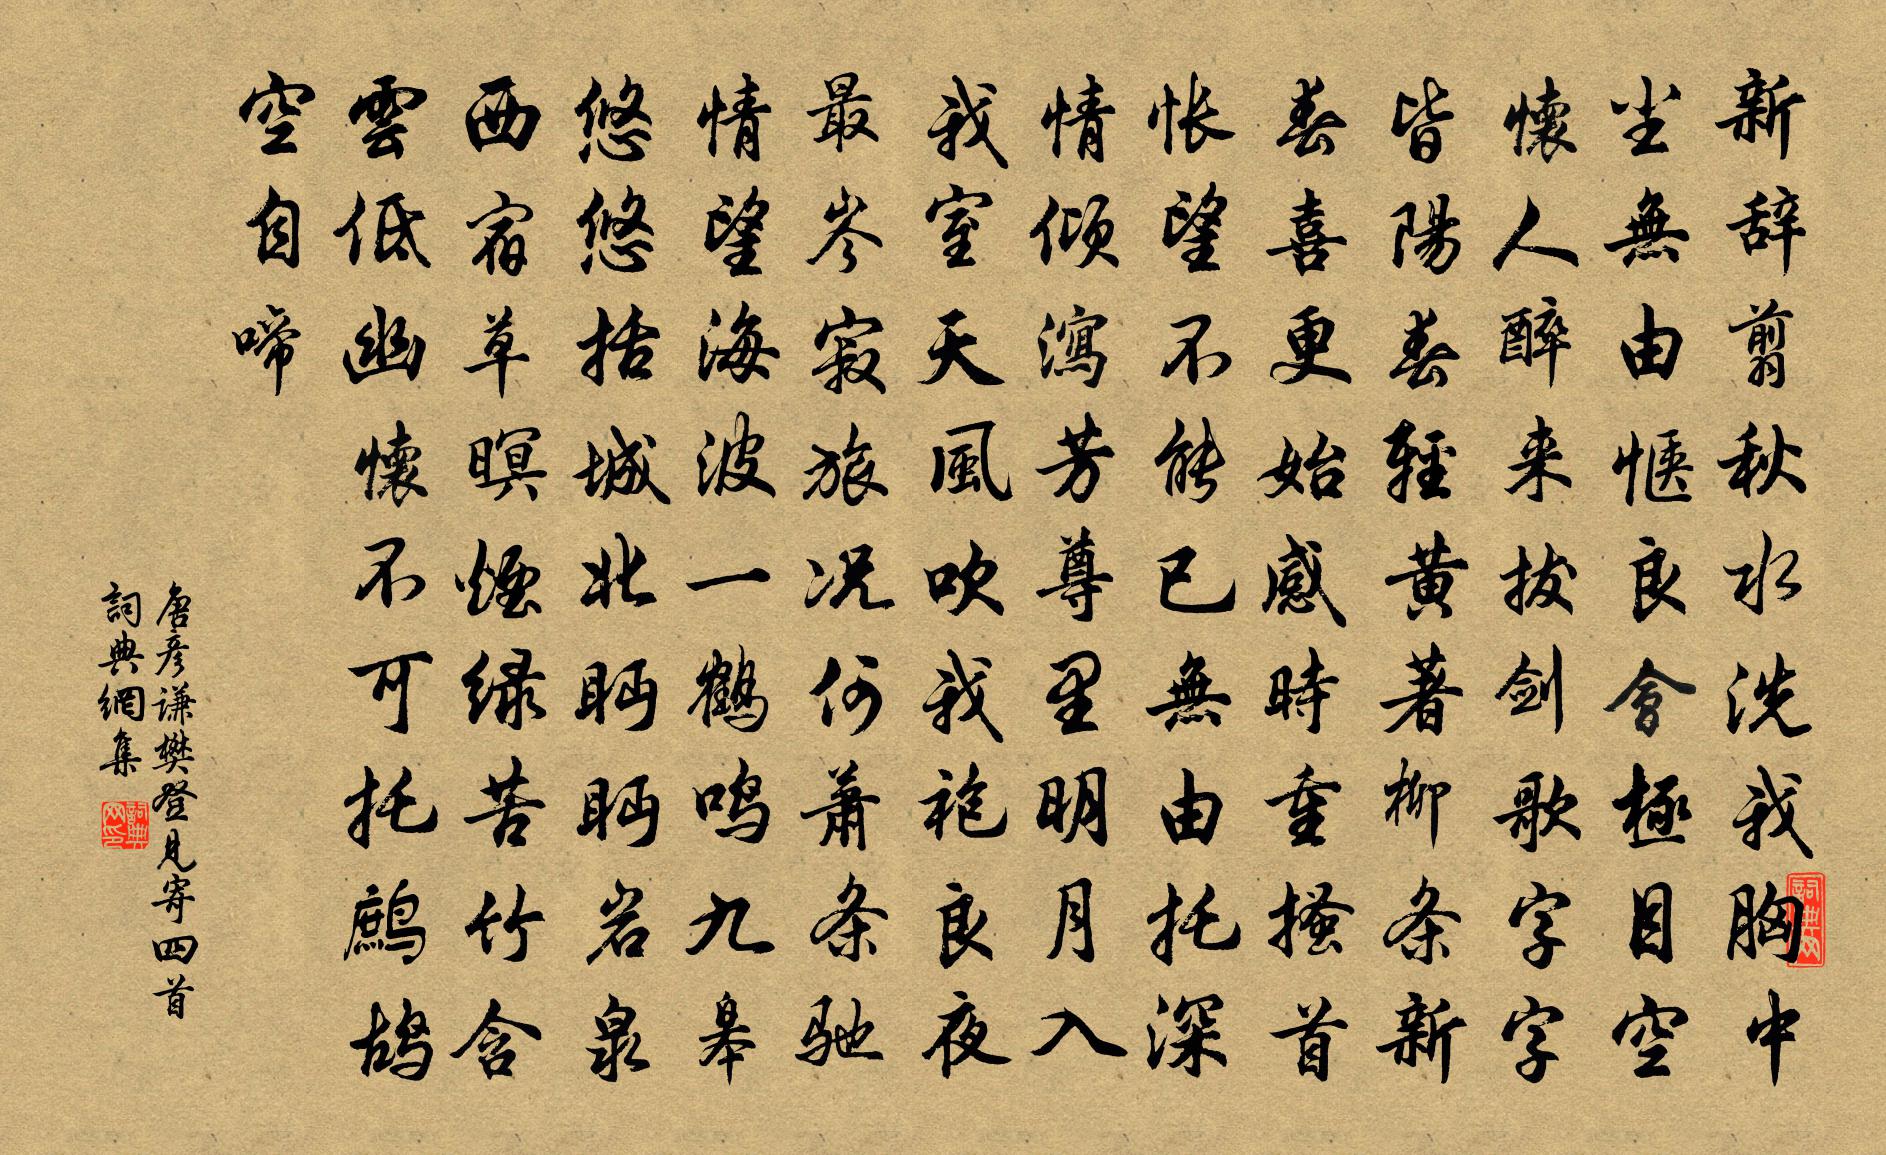 新辞剪秋水洗我胸中
尘無由惬良會極目空
懷人醉来拔剑歌字字
皆陽春輕黄著柳条新
春喜更始感時重搔首
怅望不能已無由托深
情倾瀉芳尊里明月入
我室天風吹我袍良夜
最岑寂旅况何萧条驰
情望海波一鶴鸣九皋
悠悠括城北眄眄岩泉
西宿草暝煙绿苦竹含
雲低幽懷不可托鹧鸪
空自啼
唐彦谦樊登見寄四首
詞典網集
詞典网
詞典网印